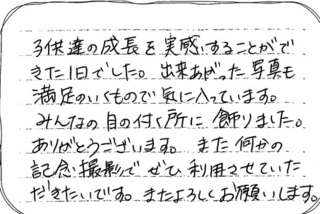 子供達の成長を実感することがで
きた1日でした。出来あがった写真も
満足のいくもので気に入っています。
みんなの目の付く所に飾りました。
ありがとうございます。また何かの
記念撮影でぜひ利用させていた
だきたいです。またよろしくお願いします。